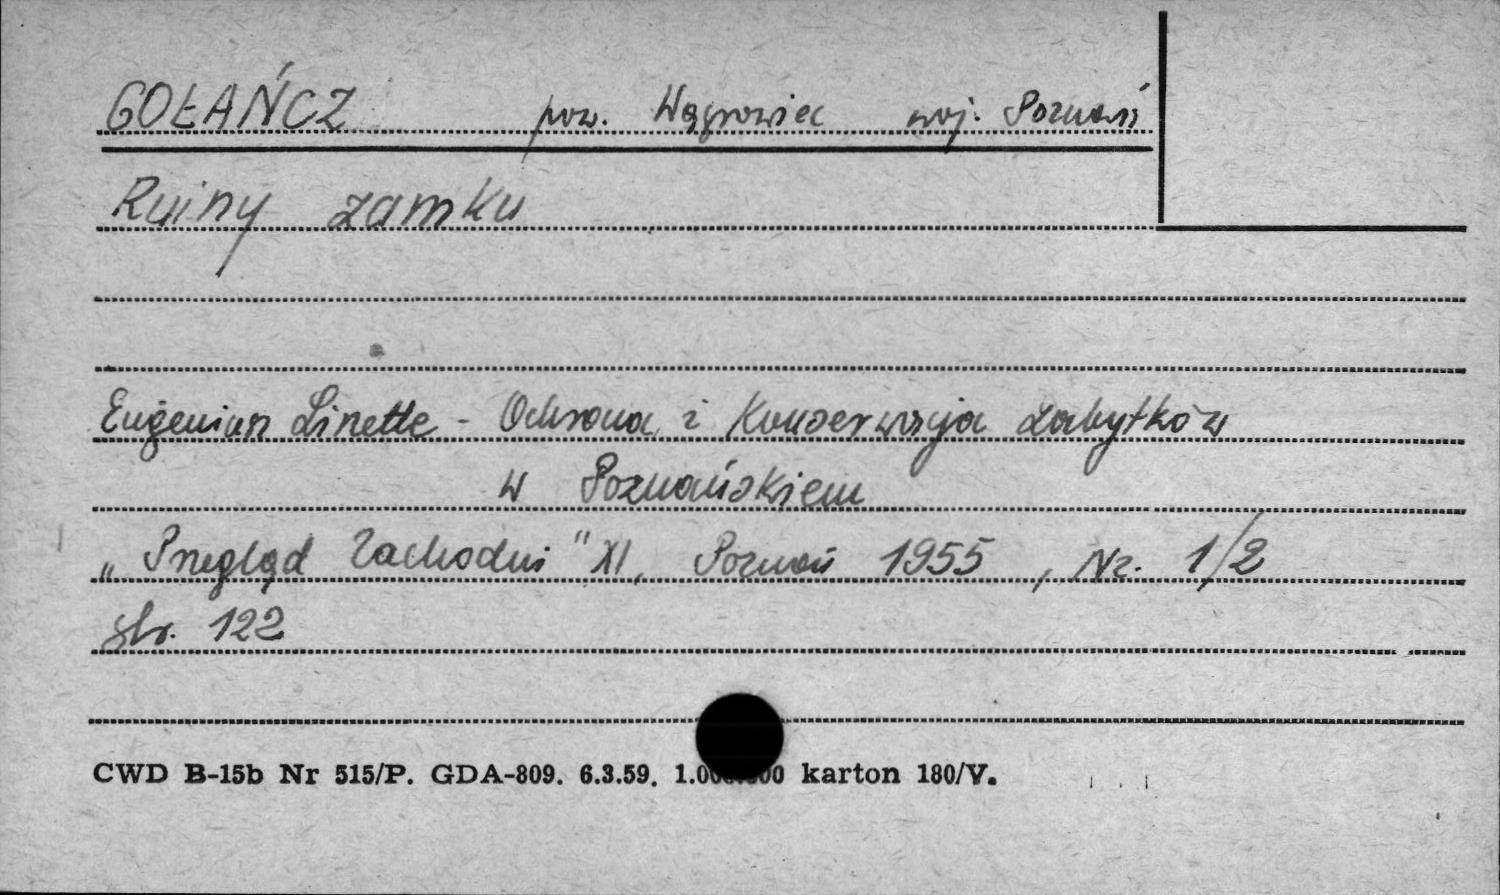 GOŁAŃCZ pow. Wągrowiec woj. Poznań
Ruiny zamku
Eugeniusz Linette - Ochrona i Konserwacja zabytków
w Poznańskiem
„Przegląd Zachodni" XI, Poznań 1955, Nr. 1/2
str. 122
CWD B-15b Nr 515/P. GDA-809. 6.3.59. karton 180/V.